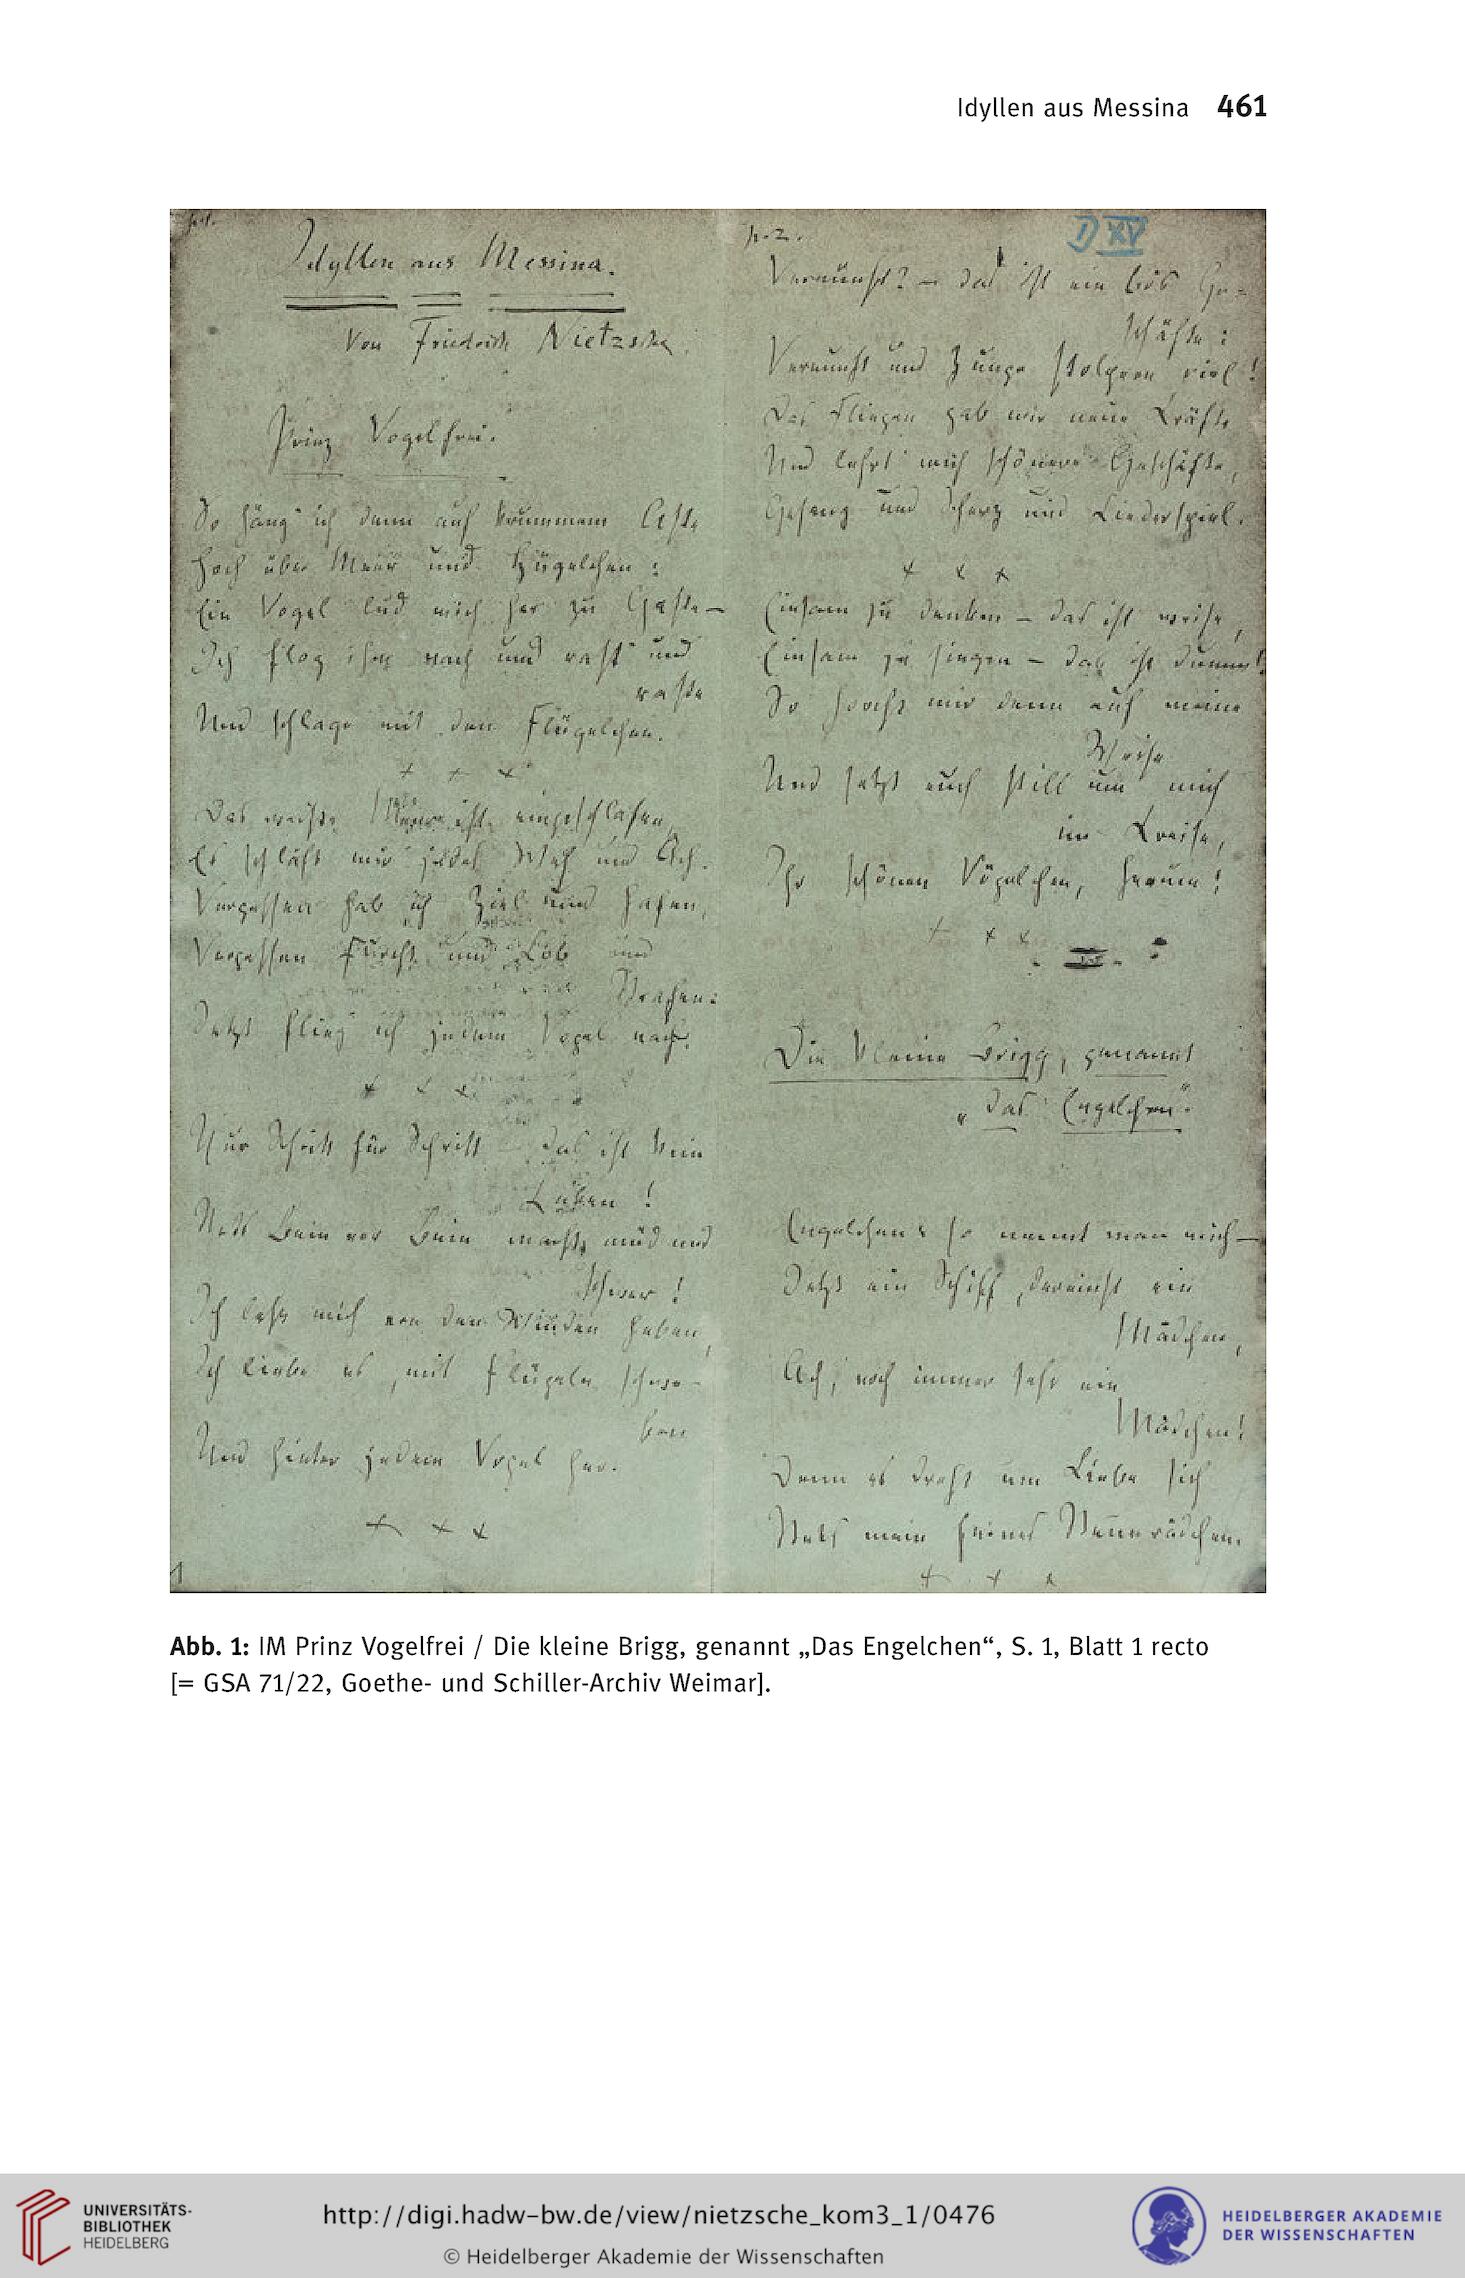 Idyllen aus Messina 461
p. 1.
Idyllen aus Messina.
Von Friedrich Nietzsche.
Prinz Vogelfrei.
So häng ich denn auf krummem Aste
Hoch über Meer und Hügelchen:
Ein Vogel lud mich her zu Gaste —
Ich flog ihm nach und rast' und
raste
Und schlage mit den Flügelchen.
+ + +
Das weiße Meer ist eingeschlafen,
Es schläft mir jedes Weh und Ach.
Vergessen hab ich Ziel und Hafen,
Vergessen Furcht und Lob und
Strafen:
Jetzt flieg ich jedem Vogel nach.
+ + +
Nur Schritt für Schritt — das ist kein
Leben!
Stets Bein vor Bein macht müd und
schwer!
Ich laß mich von den Winden heben,
Ich liebe es, mit Flügeln schwe-
ben
Und hinter jedem Vogel her.
+ + +
1
p. 2.
D XV
Vernunft? — das ist ein bös Ge-
schäfte:
Vernunft und Zunge stolpern viel!
Das Fliegen gab mir neue Kräfte
Und lehrt' mich schönere Geschäfte,
Gesang und Scherz und Liederspiel.
+ + +
Einsam zu denken — das ist weise,
Einsam zu singen — das ist dumm!
So horcht mir denn auf meine
Weise
Und setzt euch still um mich
im Kreise,
Ihr schönen Vögelchen, herum!
+ + +
Die kleine Brigg, genannt
„das Engelchen“.
Engelchen: so nennt man mich —
Jetzt ein Schiff, dereinst ein
Mädchen,
Ach, noch immer sehr ein
Mädchen!
Denn es dreht um Liebe sich
Stets mein feines Steuerrädchen.
+ + +
Abb. 1: IM Prinz Vogelfrei / Die kleine Brigg, genannt „Das Engelchen“, S. 1, Blatt 1 recto
[= GSA 71/22, Goethe- und Schiller-Archiv Weimar].
UNIVERSITÄTS-
BIBLIOTHEK
HEIDELBERG
http://digi.hadw-bw.de/view/nietzsche_kom3_1/0476
© Heidelberger Akademie der Wissenschaften
HEIDELBERGER AKADEMIE
DER WISSENSCHAFTEN